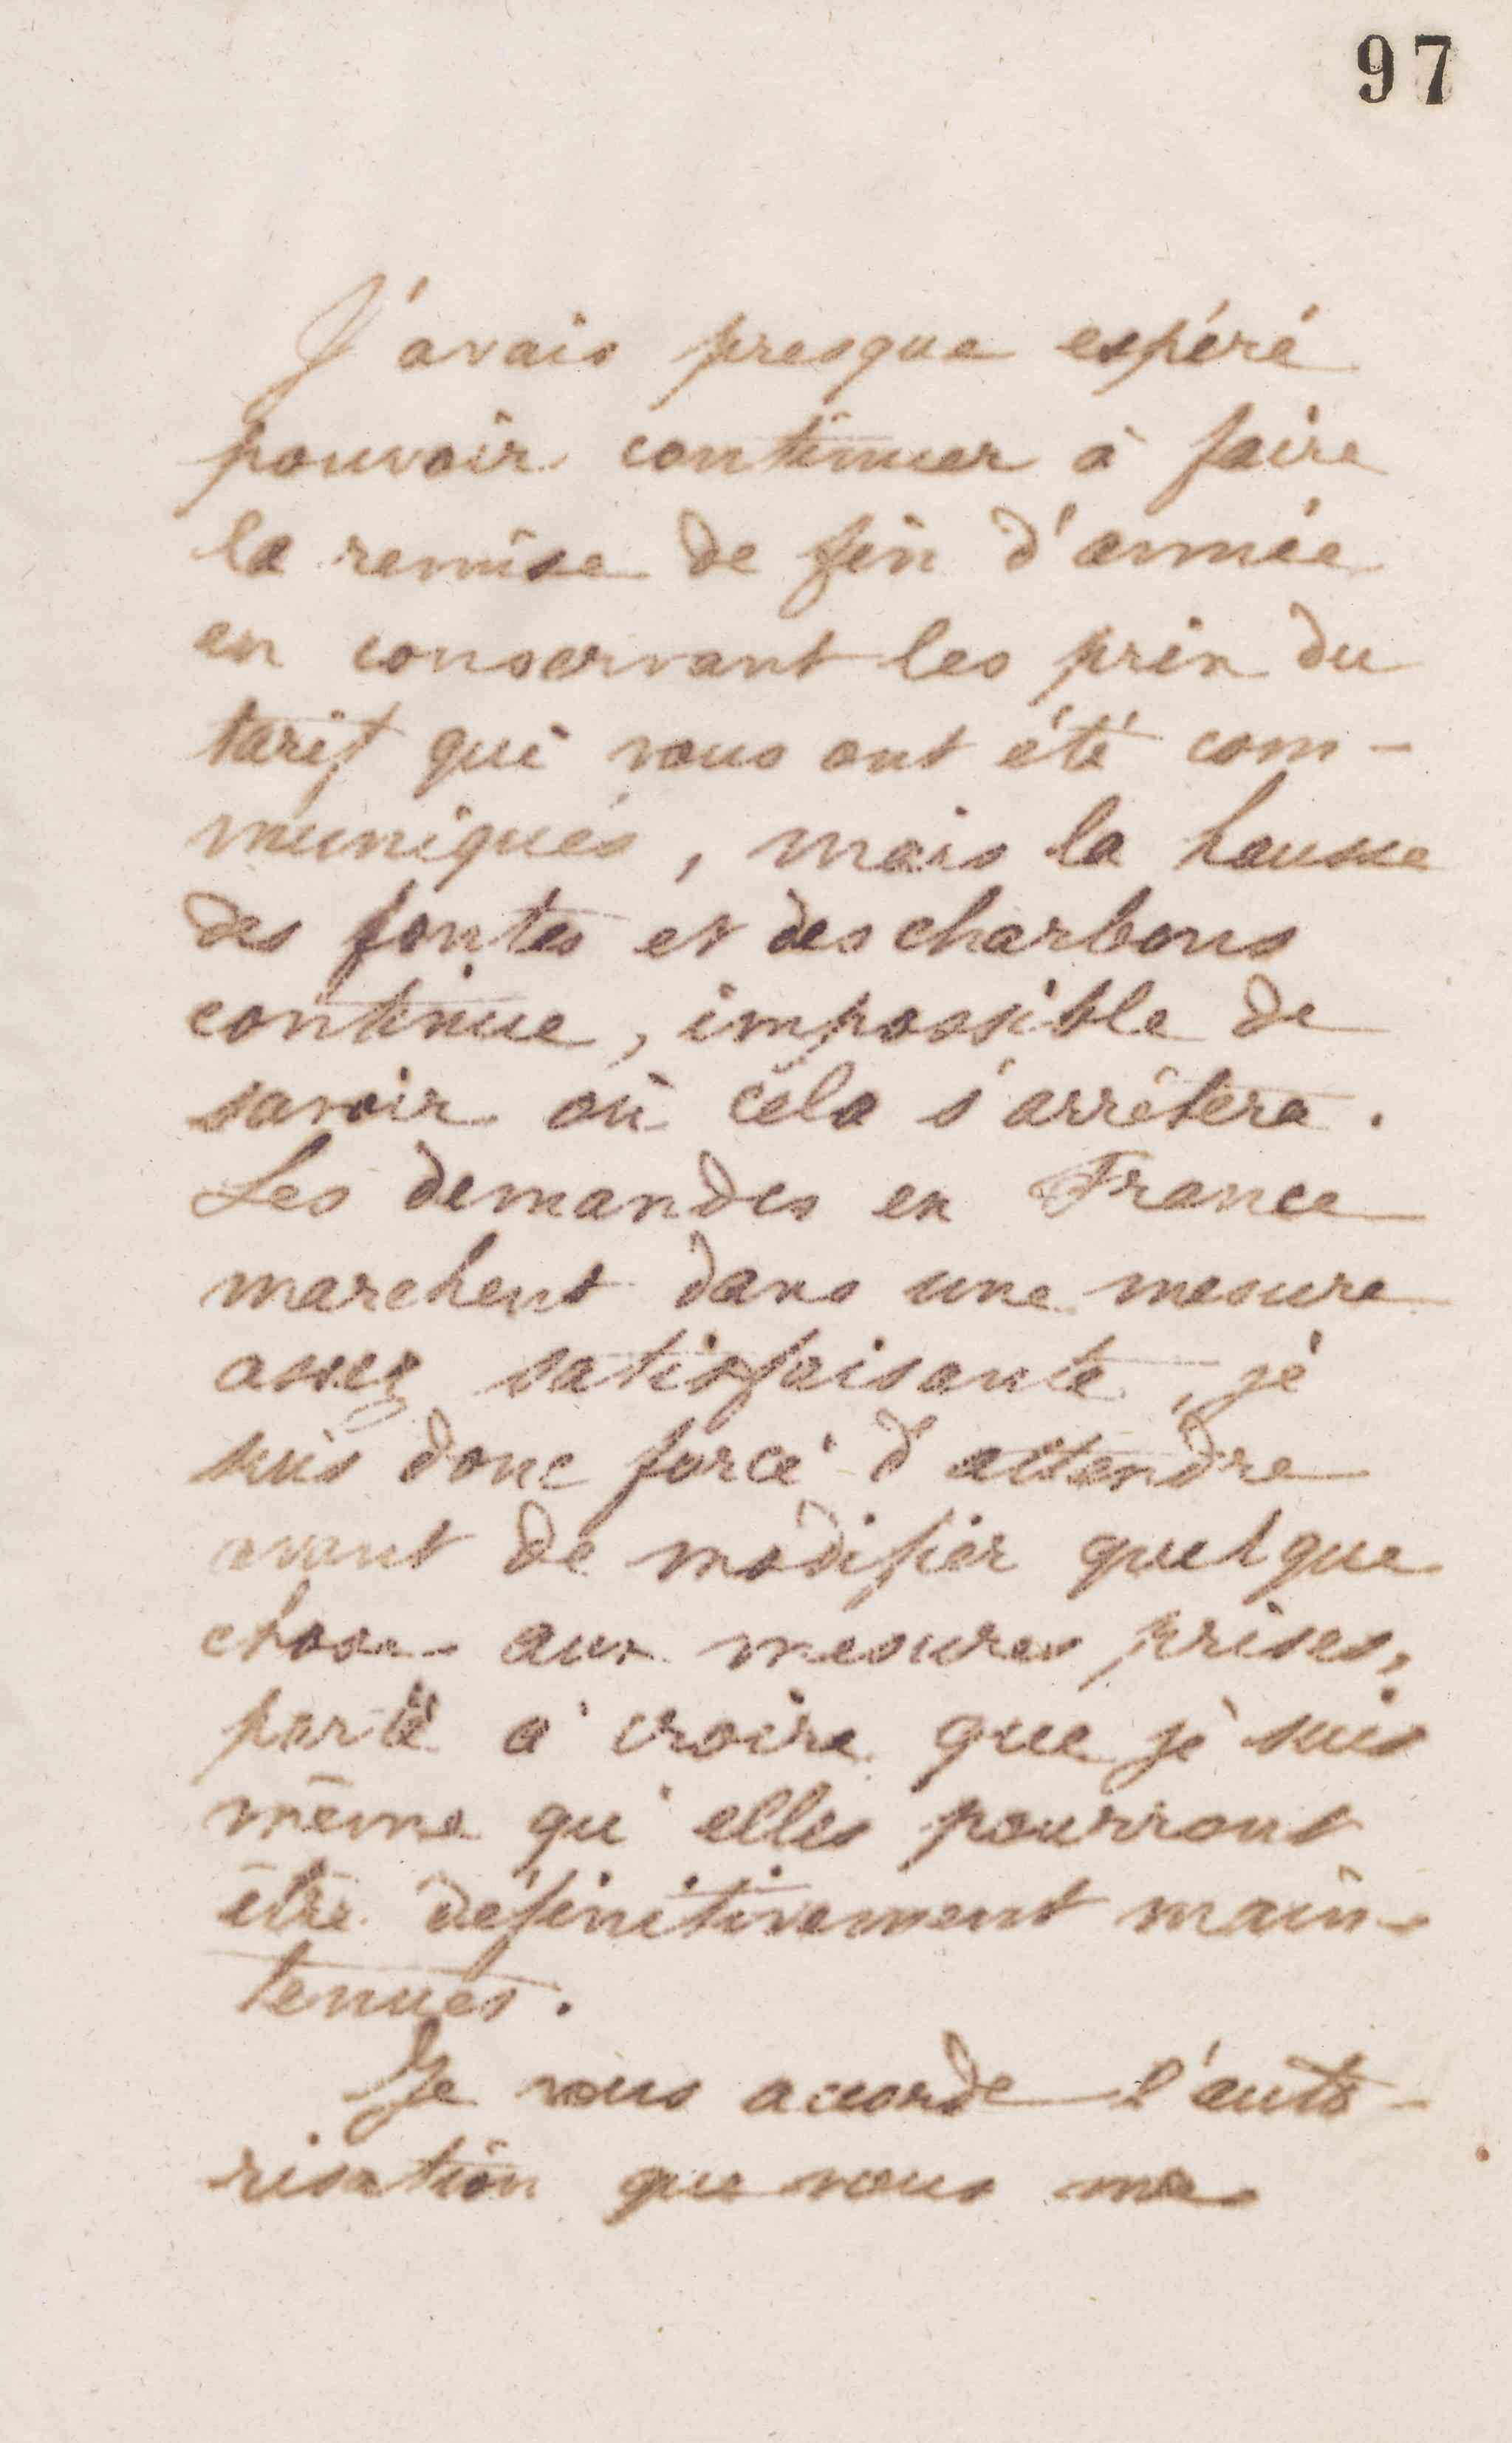 97
J'avais presque espéré
pouvoir continuer à faire
la remise de fin d'année
en conservant les prix du
tarif qui vous ont été com-
muniqués, mais la hausse
des fontes et des charbons
continue, impossible de
savoir où cela s'arrêtera.
Les demandes en France
marchent dans une mesure
assez satisfaisante, je
suis donc forcé d'attendre
avant de modifier quelque
chose aux mesures prises,
porté à croire que je suis
même qu'elles pourront
être définitivement main-
tenues.
Je vous accorde l'auto-
risation que vous me